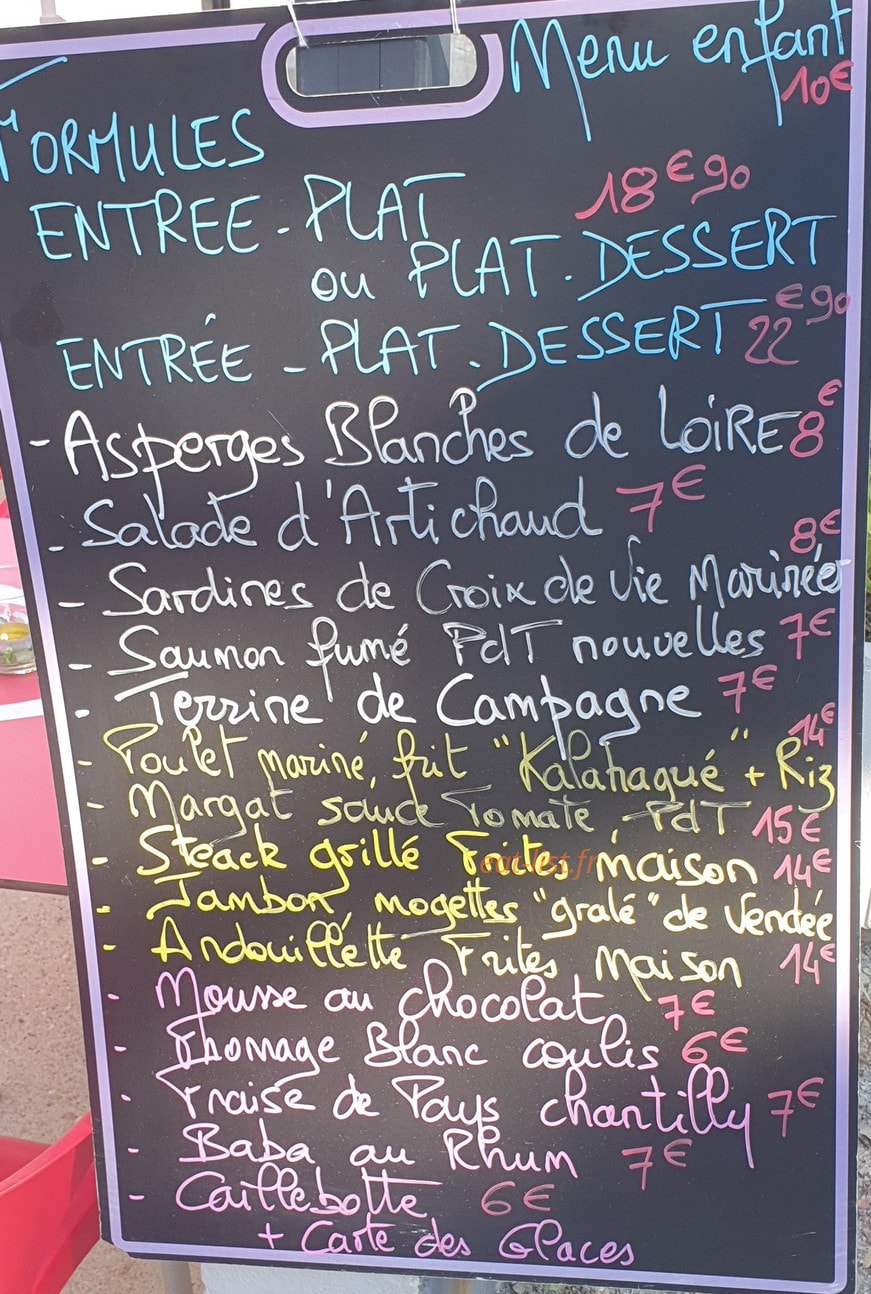 Menu enfant
10€
FORMULES
ENTREE - PLAT 18€90
ou PLAT . DESSERT
ENTRÉE - PLAT . DESSERT 22€90
- Asperges Blanches de LOIRE 8€
- Salade d'Artichaud 7€
- Sardines de Croix de Vie Marinées 8€
- Saumon fumé PdT nouvelles 7€
- Terrine de Campagne 7€
- Poulet mariné, frit "Kalahagué" + Riz 14€
- Margat sauce Tomate, PdT 15€
- Steack grillé Frites maison 14€
eat-list.fr
- Jambon, mogettes "gralé" de Vendée
- Andouillette Frites Maison 14€
- Mousse au chocolat 7€
- Fromage Blanc coulis 6€
- Fraise de Pays chantilly 7€
- Baba au Rhum 7€
- Caillebotte 6€
+ Carte des Glaces